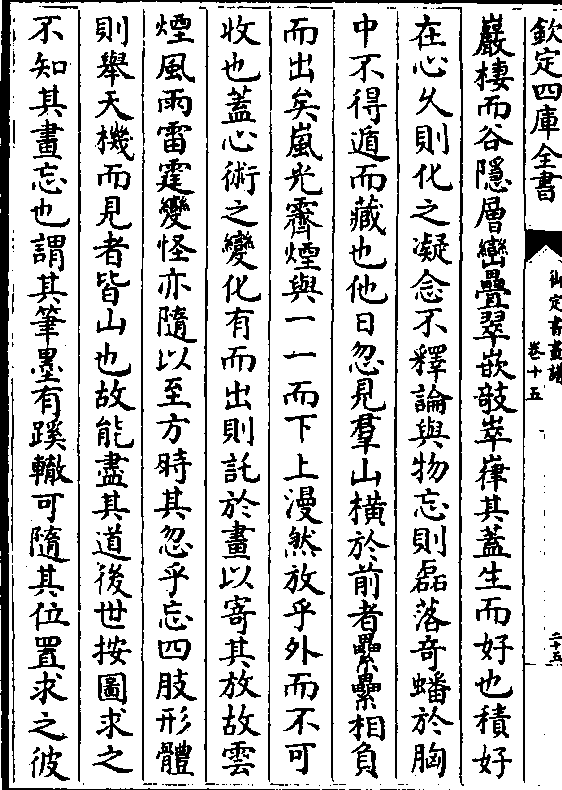 欽定四庫全書
御定書畫譜
卷十五
二十五
巖棲而谷隱層巒疊翠嵌攲崒嵂其蓋生而好也積好
在心久則化之凝念不釋論與物忘則磊落奇蟠於胸
中不得遁而藏也他日忽見羣山橫於前者纍纍相負
而出矣嵐光霽煙與一一而下上漫然放乎外而不可
收也蓋心術之變化有而出則託於畫以寄其放故雲
煙風雨雷霆變怪亦隨以至方時其忽乎忘四肢形體
則舉天機而見者皆山也故能盡其道後世按圖求之
不知其畫忘也謂其筆墨有蹊轍可隨其位置求之彼